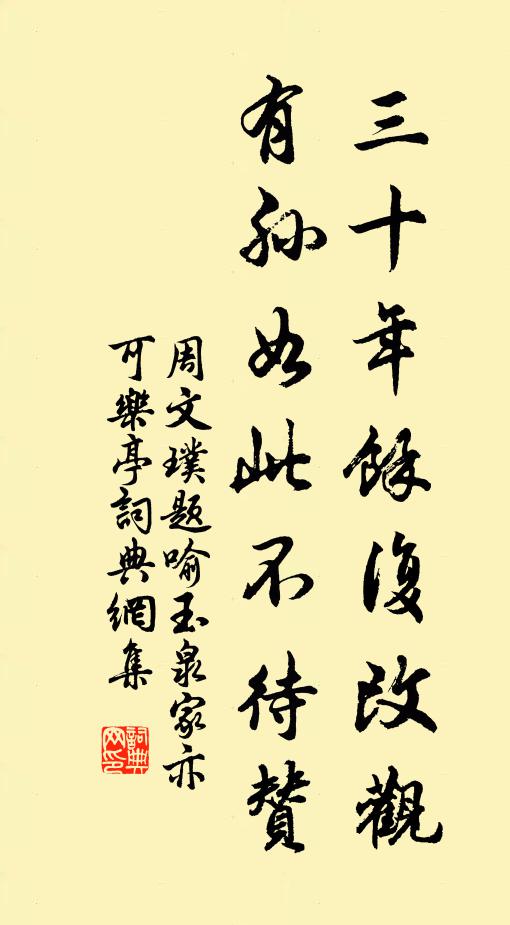 三十年餘復改觀
有孫如此不待贊
周文璞題喻玉泉家亦
可樂亭詞典網集
詞典網印